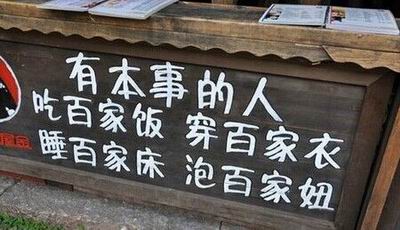 有本事的人
吃百家饭 穿百家衣
睡百家床 泡百家妞